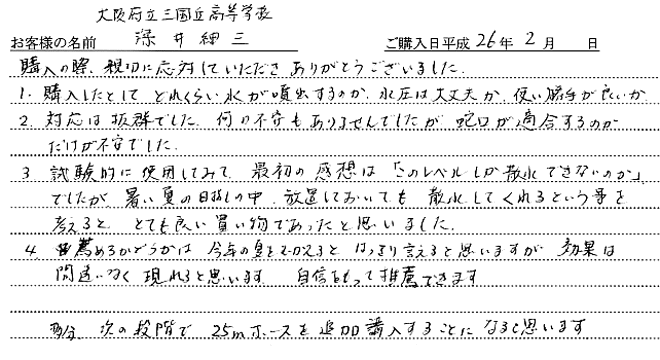 大阪府立三国丘高等学校
お客様の名前 深井 細三 ご購入日平成 26年 2月 日
購入の際、親切に応対していただきありがとうございました。
1. 購入したとして どれくらい水が噴出するのか、水圧は大丈夫か、使い勝手が良いか
2. 対応は抜群でした。何の不安もありませんでしたが 蛇口が適合するのか
だけが不安でした。
3 試験的に使用してみて、最初の感想は「このレベルしか散水できないのか」
でしたが、暑い夏の日差しの中、放置しておいても 散水してくれるという事を
考えると、とても良い買い物であったと思いました。
4. 薦めるかどうかは 今年の夏をむかえると はっきり言えると思いますが 効果は
間違いなく現れると思います 自信もって推薦できます
多分、次の段階で 25mホースを追加購入することになると思います